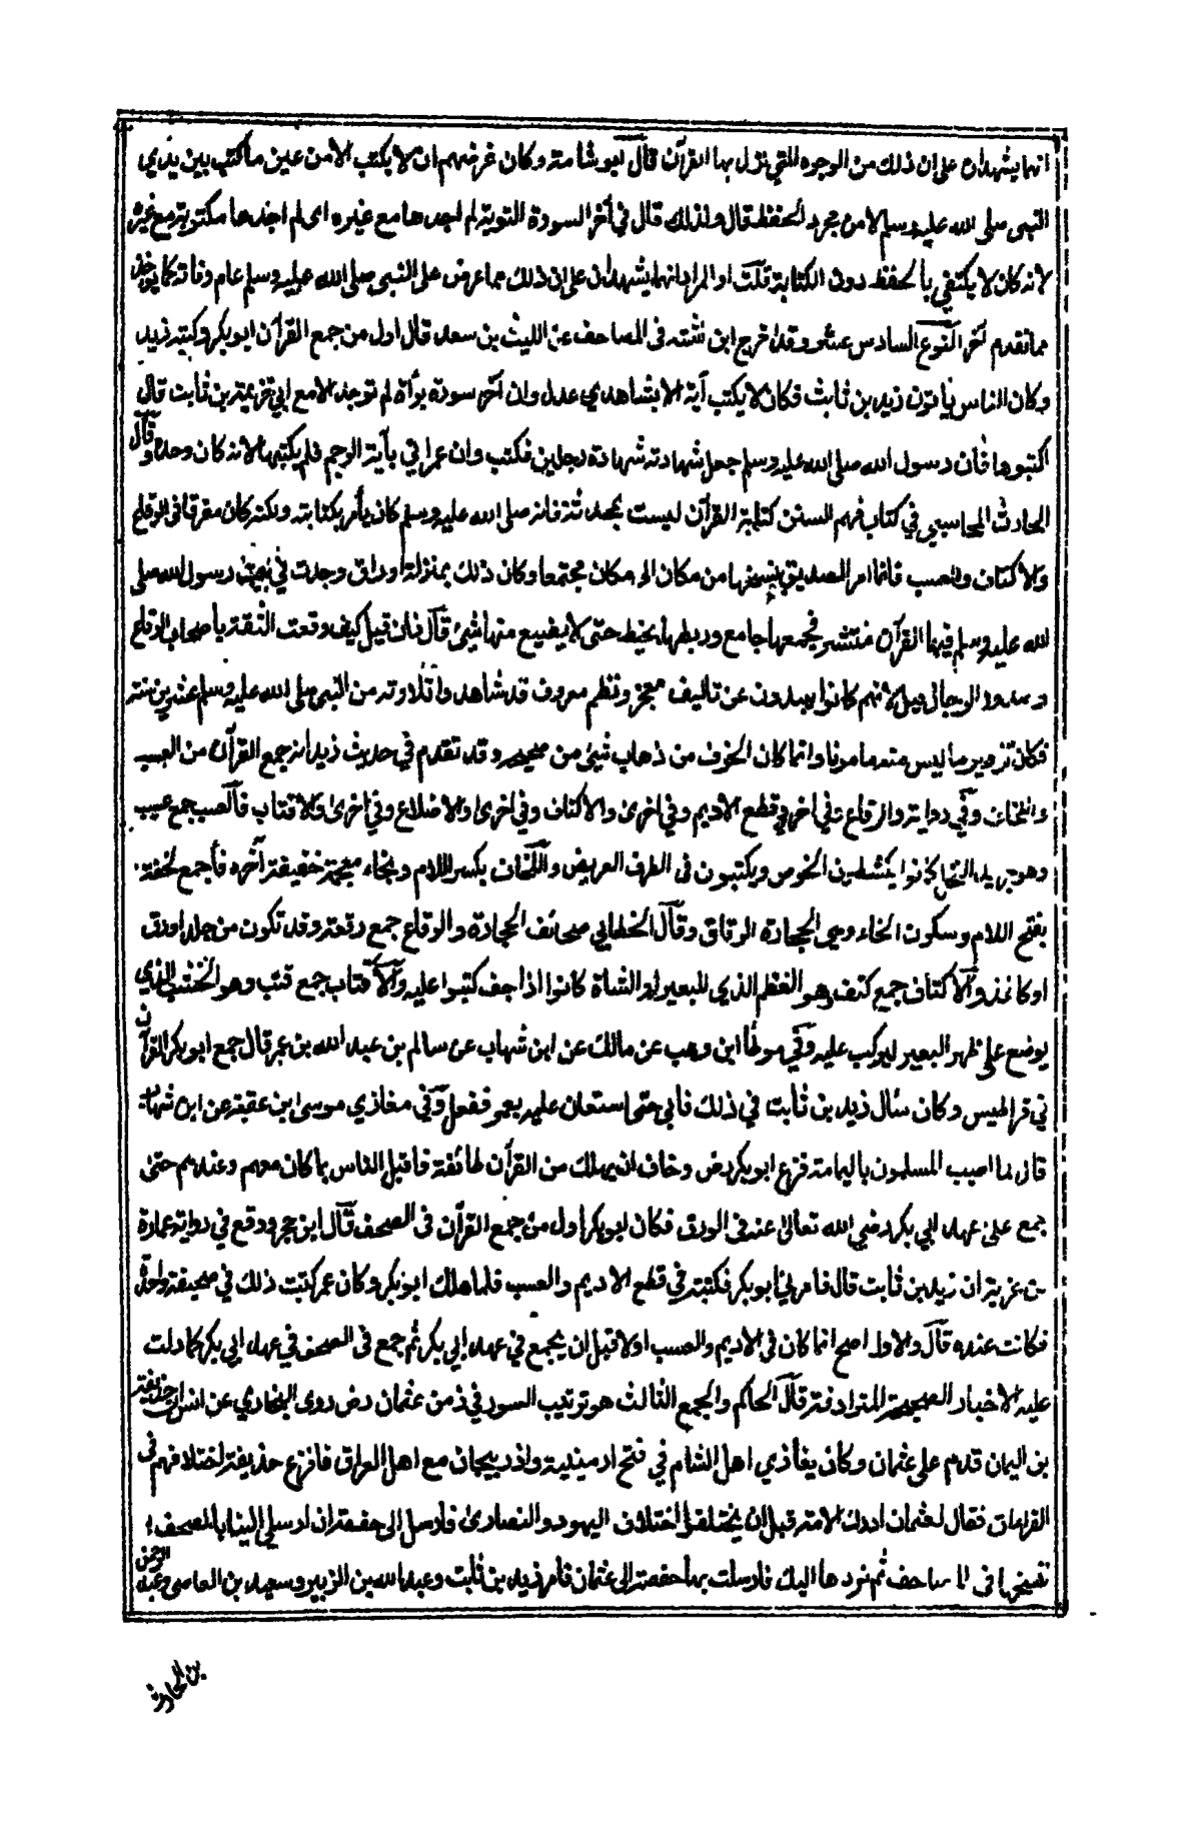 انهما يشهدان على ان ذلك من الوجوه التي نزل بها القرآن قال ابو شامة وكان غرضهم ان لا يكتب الا من عين ما كتب بين يدي
النبي صلى الله عليه وسلم لا من مجرد الحفظ قال ولذلك قال في آخر السورة التوبة لم اجدها مع غيره اى لم اجدها مكتوبة مع غيره
لانه كان لا يكتفي بالحفظ دون الكتابة قلت او المراد انهما يشهدان على ان ذلك مما عرض على النبي صلى الله عليه وسلم عام وفاته كما يوخذ
مما تقدم آخر النوع السادس عشر وقد اخرج ابن اشته فى المصاحف عن الليث بن سعد قال اول من جمع القرآن ابو بكر وكتبه زيد
وكان الناس يأتون زيد بن ثابت فكان لا يكتب آية الا بشاهدي عدل وان آخر سورة برأة لم توجد الا مع ابي خزيمة بن ثابت قال
اكتبوها فان رسول الله صلى الله عليه وسلم جعل شهادته شهادة رجلين فكتب وان عمر اتي بآية الرجم فلم يكتبها لانه كان وحده وقال
الحارث المحاسبي في كتاب فهم السنن كتابة القرآن ليست بمحدثة فانه صلى الله عليه وسلم كان يأمر بكتابته ولكنه كان مفرقا فى الرقاع
والاكتاف والعسب فانما امر الصديق بنسخها من مكان الى مكان مجتمعا وكان ذلك بمنزلة اوراق وجدت في بيت رسول الله صلى
الله عليه وسلم فيها القرآن منتشر فجمعها جامع وربطها بخيط حتى لا يضيع منها شيئ قال فان قيل كيف وقعت الثقة باصحاب الرقاع
وصدور الرجال قيل لانهم كانوا يبدون عن تاليف معجز ونظم معروف قد شاهدوا تلاوته من النبى صلى الله عليه وسلم عشرين سنة
فكان تزوير ما ليس منه مامونا وانما كان الخوف من ذهاب شيئ من صحيحه وقد تقدم في حديث زيد انه جمع القرآن من العسب
واللخاف وفي رواية والرقاع وفي اخرى قطع الاديم وفي اخرى والاكتاف وفي اخرى والاضلاع وفي اخرى والاقتاب فالعسب جمع عسيب
وهو جريد النخل كانوا يكشطون الخوص ويكتبون فى الطرف العريض واللخاف بكسر اللام وبخاء معجمة خفيفة آخره فاجمع لخفة
بفتح اللام وسكون الخاء وهي الحجارة الرقاق وقال الخطابي صحائف الحجارة والرقاع جمع رقعة وقد تكون من جلد او ورق
او كاغذ والاكتاف جمع كتف وهو العظم الذي للبعير او الشاة كانوا اذا جف كتبوا عليه والاقتاب جمع قتب وهو الخشب الذي
يوضع على ظهر البعير ليركب عليه وفي موطأ ابن وهب عن مالك عن ابن شهاب عن سالم بن عبد الله بن عمر قال جمع ابو بكر القرآن
في قراطيس وكان سأل زيد بن ثابت في ذلك فابى حتى استعان عليه بعمر ففعل وفي مغازي موسى ابن عقبة عن ابن شهاب
قال لما اصيب المسلمون باليمامة فزع ابو بكر رض وخاف ان يهلك من القرآن طائفة فاقبل الناس بما كان معهم وعندهم حتى
جمع على عهد ابي بكر رضي الله تعالى عنه فى الورق فكان ابو بكر اول من جمع القرآن فى الصحف قال ابن حجر ووقع في رواية عمارة
بن غزية ان زيد بن ثابت قال فامرني ابو بكر فكتبته في قطع الاديم والعسب فلما هلك ابو بكر وكان عمر كتبت ذلك في صحيفة واحدة
فكانت عنده قال والاول اصح انما كان فى الاديم والعسب اولا قبل ان يجمع في عهد ابي بكر ثم جمع فى الصحف في عهد ابي بكر كما دلت
عليه الاخبار الصحيحة المترادفة قال الحاكم والجمع الثالث هو ترتيب السور في زمن عثمان رض روى البخاري عن انس ان حذيفة
بن اليمان قدم على عثمان وكان يغازي اهل الشام في فتح ارمينية واذربيجان مع اهل العراق فافزع حذيفة اختلافهم فى
القراءة فقال لعثمان ادرك الامة قبل ان يختلفوا اختلاف اليهود والنصارى فارسل الى حفصة ان ارسلي الينا بالصحف
ننسخها فى المصاحف ثم نردها اليك فارسلت بها حفصة الى عثمان فامر زيد بن ثابت وعبد الله بن الزبير وسعيد بن العاصى وعبد الرحمن
بن الحارث